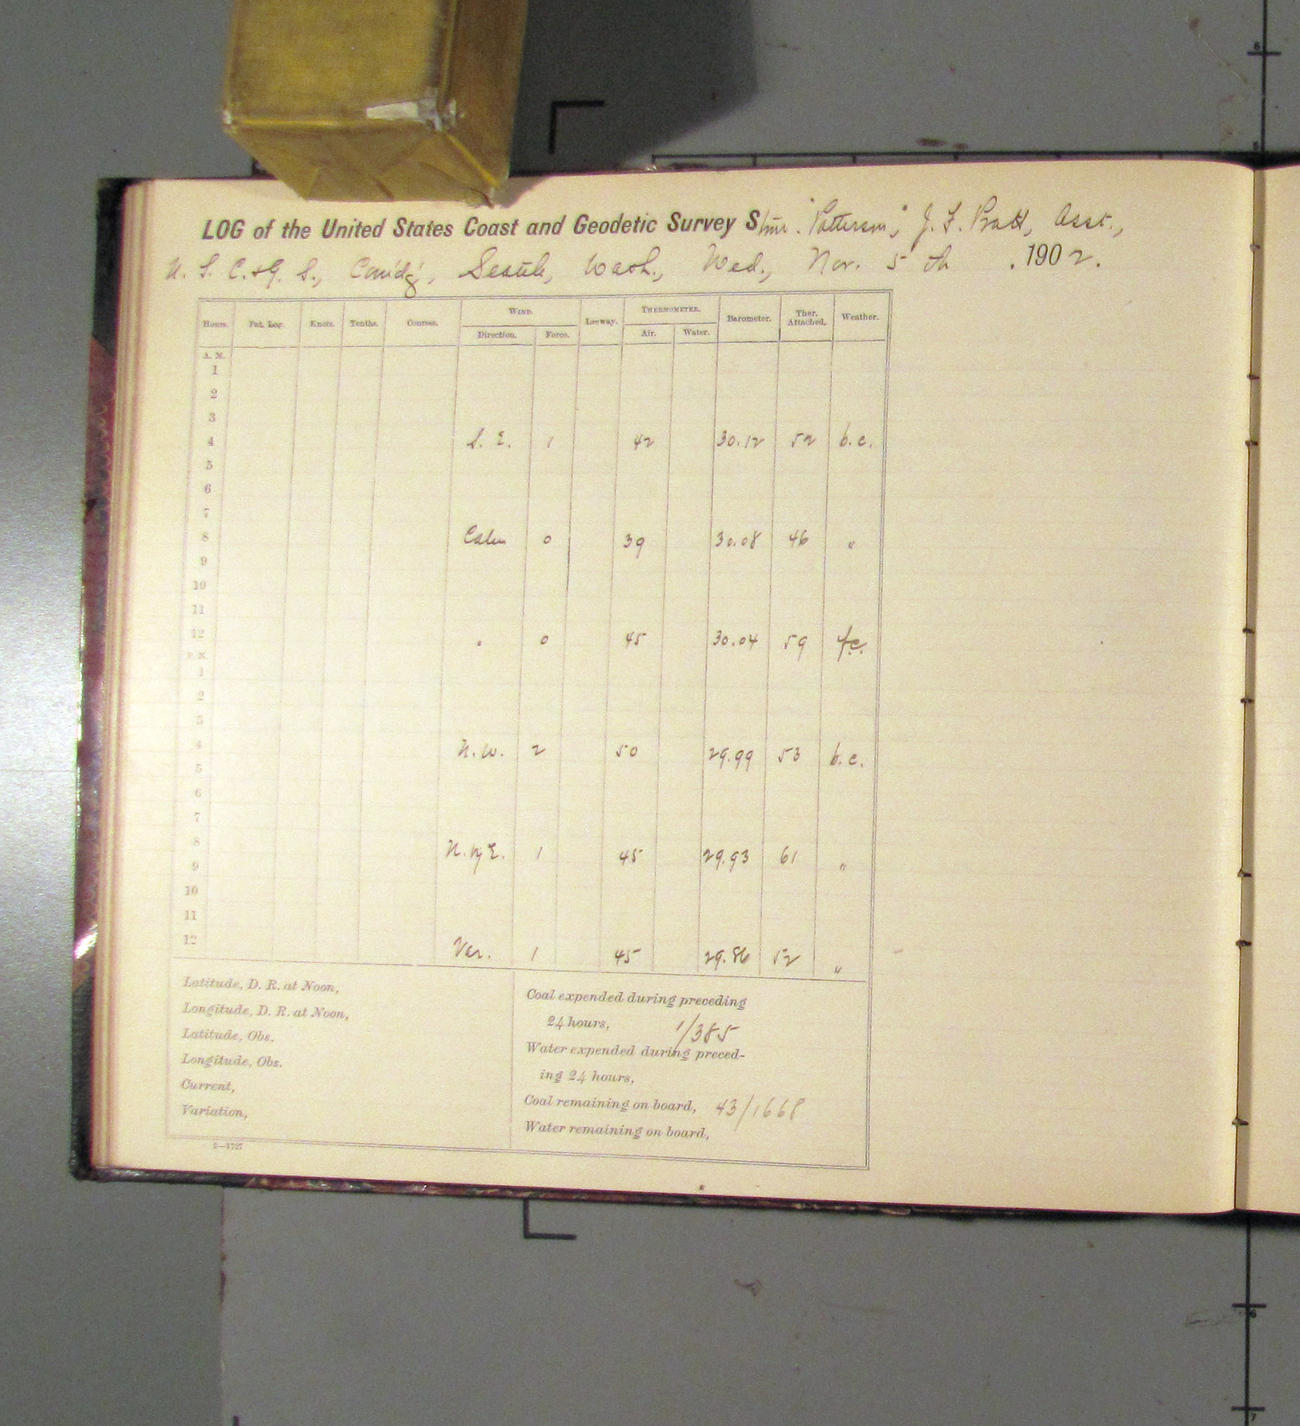 LOG of the United States Coast and Geodetic Survey Stmr. "Patterson," J. F. Pratt, Asst.,
U. S. C. & G. S., Comd'g, Seattle, Wash., Wed., Nov. 5th , 1902.
Hours. Pat. Log. Knots. Tenths. Courses. WIND. Leeway. THERMOMETER. Barometer. Ther. Attached. Weather.
Direction. Force. Air. Water.
A. M.
1
2
3
4 S. E. 1 42 30.12 52 b.c.
5
6
7
8 Calm 0 39 30.08 46 "
9
10
11
12 " 0 45 30.04 59 fc.
P. M.
1
2
3
4 N. W. 2 50 29.99 53 b.c.
5
6
7
8 N. by E. 1 45 29.93 61 "
9
10
11
12 Var. 1 45 29.86 52 "
Latitude, D. R. at Noon,
Longitude, D. R. at Noon,
Latitude, Obs.
Longitude, Obs.
Current,
Variation,
Coal expended during preceding
24 hours, 1/385
Water expended during preced-
ing 24 hours,
Coal remaining on board, 43/1668
Water remaining on board,